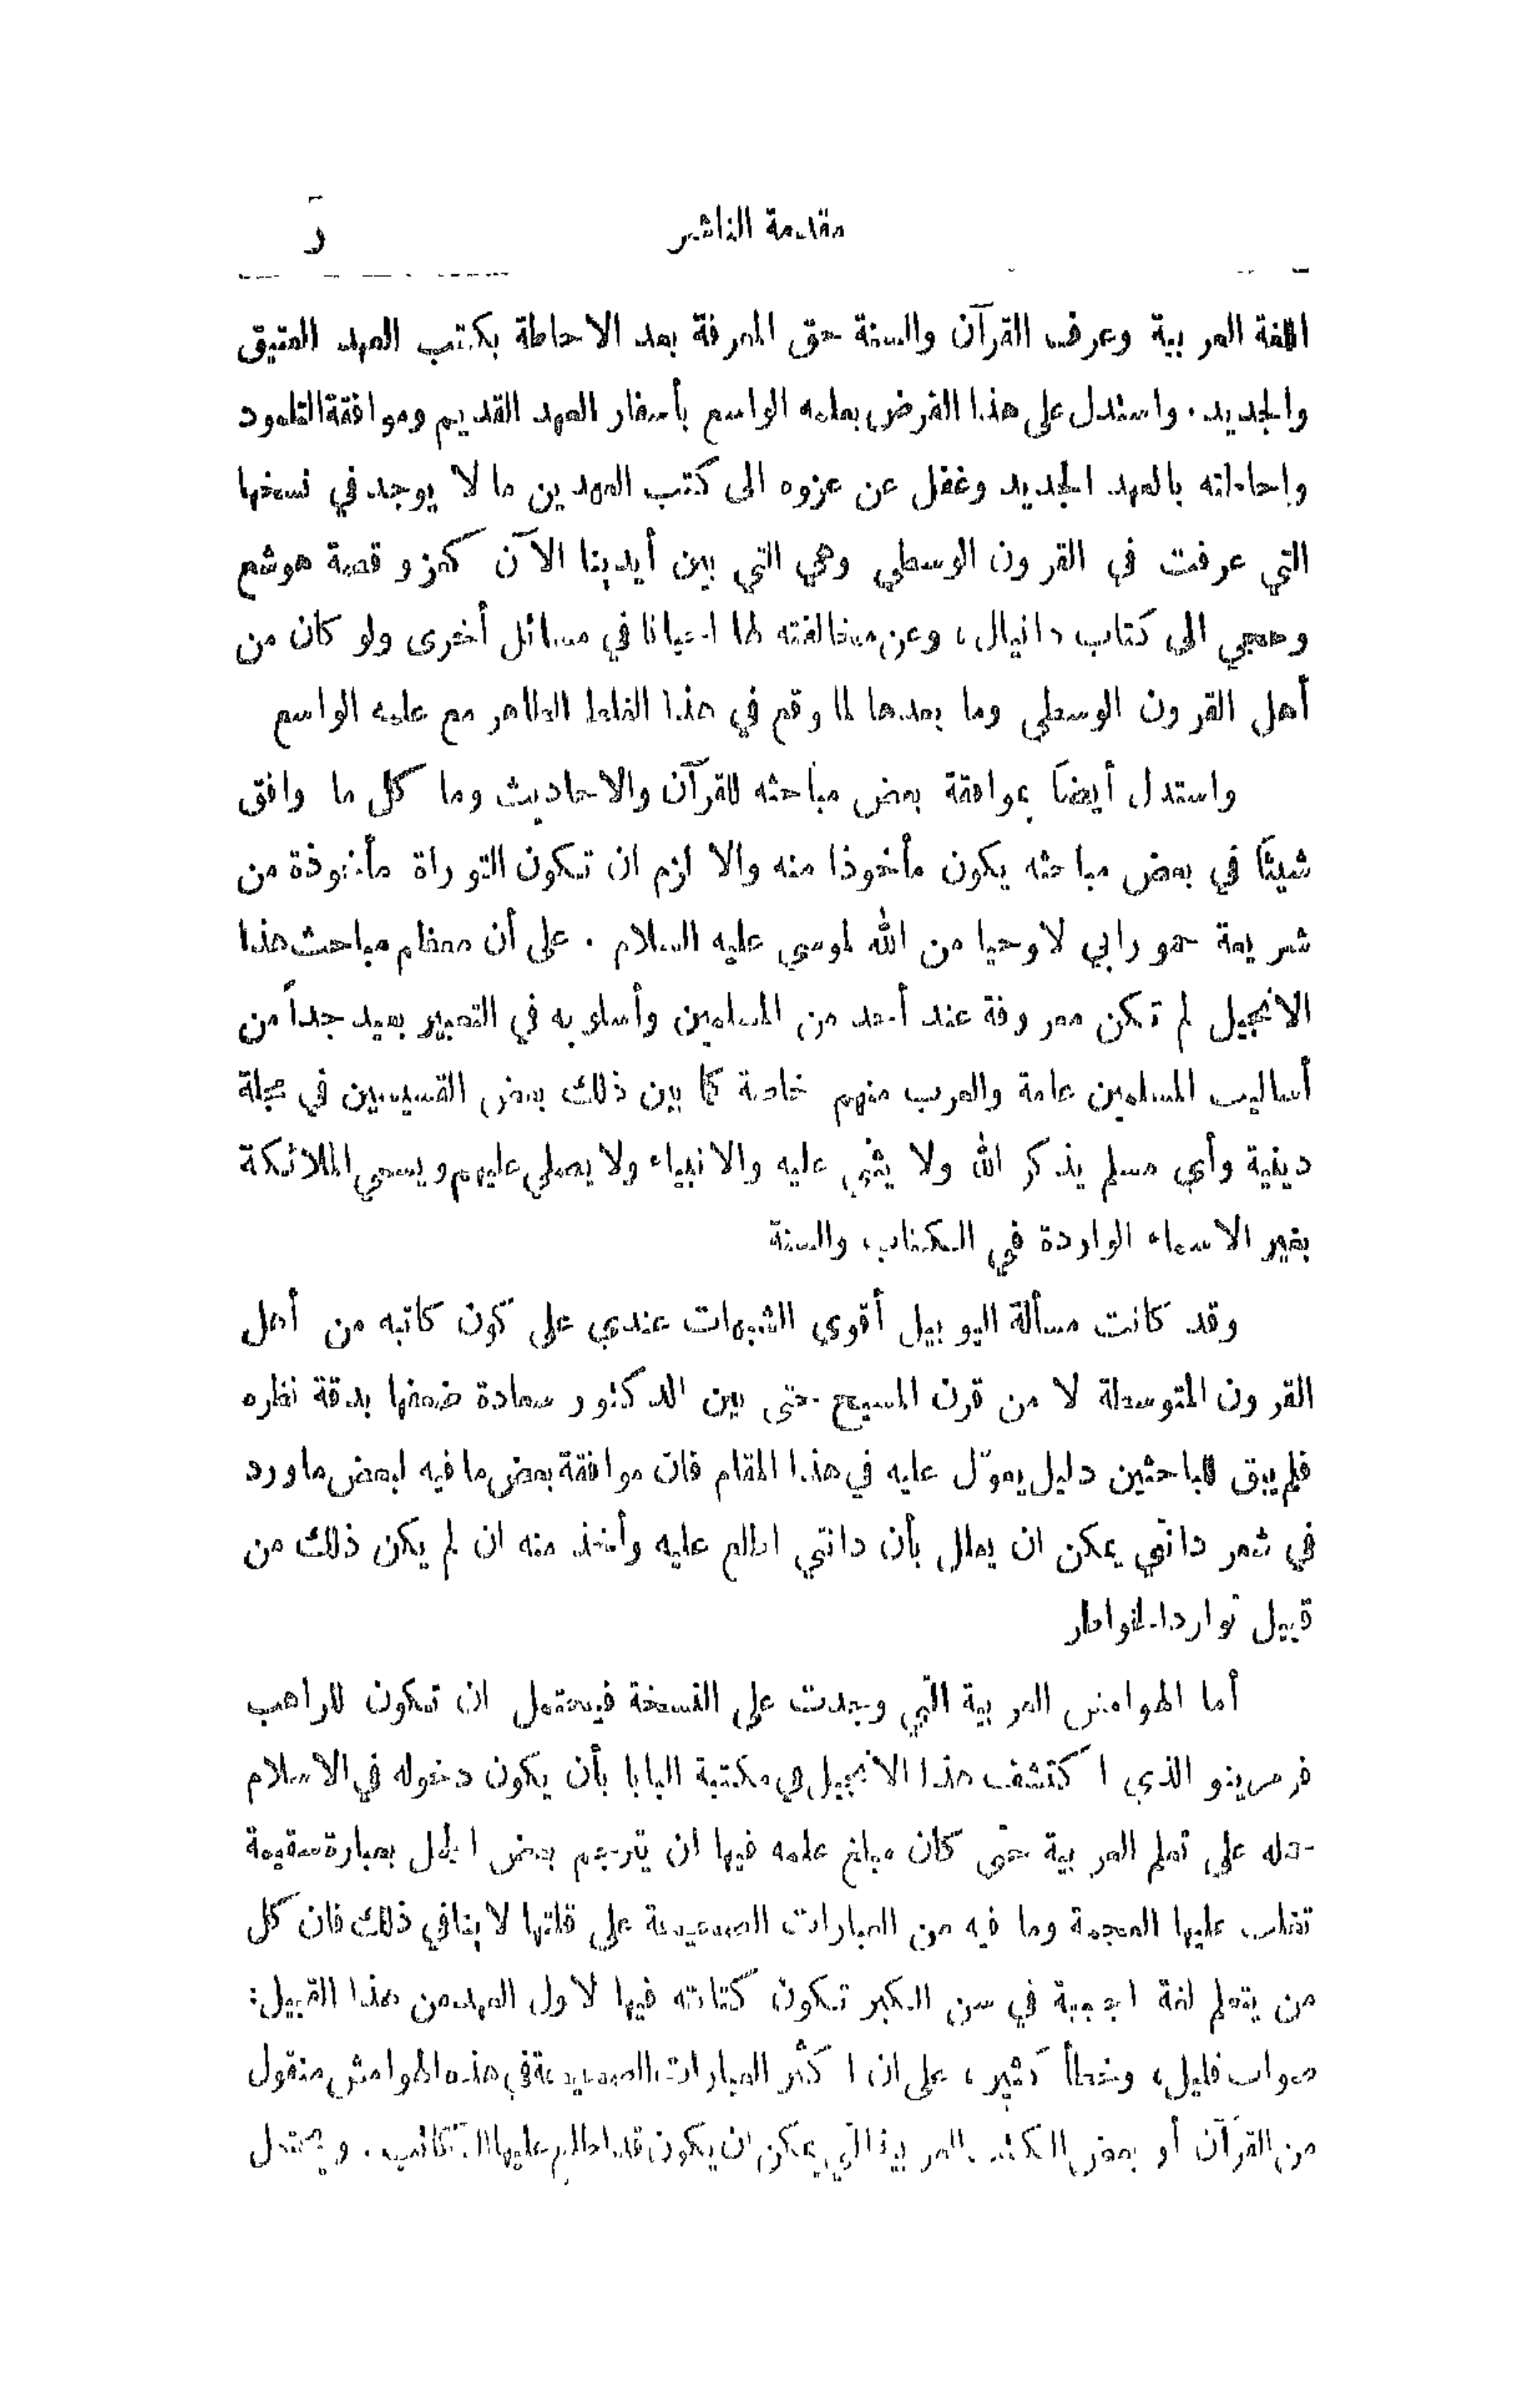 مقدمة الناشر
ز
اللغة العربية وعرف القرآن والسنة حق المعرفة بعد الاحاطة بكتب العهد العتيق
والجديد. واستدل على هذا الفرض بعلمه الواسع بأسفار العهد القديم وموافقة التلمود
وإحاطته بالعهد الجديد وغفل عن عزوه الى كتب العهدين ما لا يوجد في نسخها
التي عرفت في القرون الوسطى وهي التي بين أيدينا الآن كعزو قصة هوشع
وحجي الى كتاب دانيال، وعن مخالفته لها احيانا في مسائل أخرى ولو كان من
أهل القرون الوسطى وما بعدها لما وقع في هذا الغلط الظاهر مع علمه الواسع
واستدل أيضاً بموافقة بعض مباحثه للقرآن والاحاديث وما كل ما وافق
شيئاً في بعض مباحثه يكون مأخوذا منه والا لزم ان تكون التوراة مأخوذة من
شريعة حمورابي لا وحيا من الله لموسى عليه السلام. على أن معظم مباحث هذا
الانجيل لم تكن معروفة عند أحد من المسلمين وأسلوبه في التعبير بعيد جداً من
أساليب المسلمين عامة والعرب منهم خاصة كما بين ذلك بعض القسيسين في مجلة
دينية وأي مسلم يذكر الله ولا يثني عليه والانبياء ولا يصلي عليهم ويسمي الملائكة
بغير الاسماء الواردة في الكتاب والسنة
وقد كانت مسألة اليوبيل أقوى الشبهات عندي على كون كاتبه من أهل
القرون المتوسطة لا من قرن المسيح حتى بين الدكتور سعادة ضعفها بدقة نظره
فلم يبق للباحثين دليل يعوّل عليه في هذا المقام فان موافقة بعض ما فيه لبعض ما ورد
في شعر دانتي يمكن ان يعلل بأن دانتي اطلع عليه وأخذ منه ان لم يكن ذلك من
قبيل توارد الخواطر
أما الهوامش العربية التي وجدت على النسخة فيحتمل ان تكون للراهب
فرمرينو الذي اكتشف هذا الانجيل في مكتبة البابا بأن يكون دخوله في الاسلام
حمله على تعلم العربية حتى كان مبلغ علمه فيها ان يترجم بعض الجمل بعبارة سقيمة
تغلب عليها العجمة وما فيه من العبارات الصحيحة على قلتها لا ينافي ذلك فان كل
من يتعلم لغة اجنبية في سن الكبر تكون كتابته فيها لاول العهد من هذا القبيل:
صواب قليل، وخطأ كثير، على ان اكثر العبارات الصحيحة في هذه الهوامش منقول
من القرآن أو بعض الكتب العربية التي يمكن ان يكون قد اطلع عليها الكاتب. ويحتمل